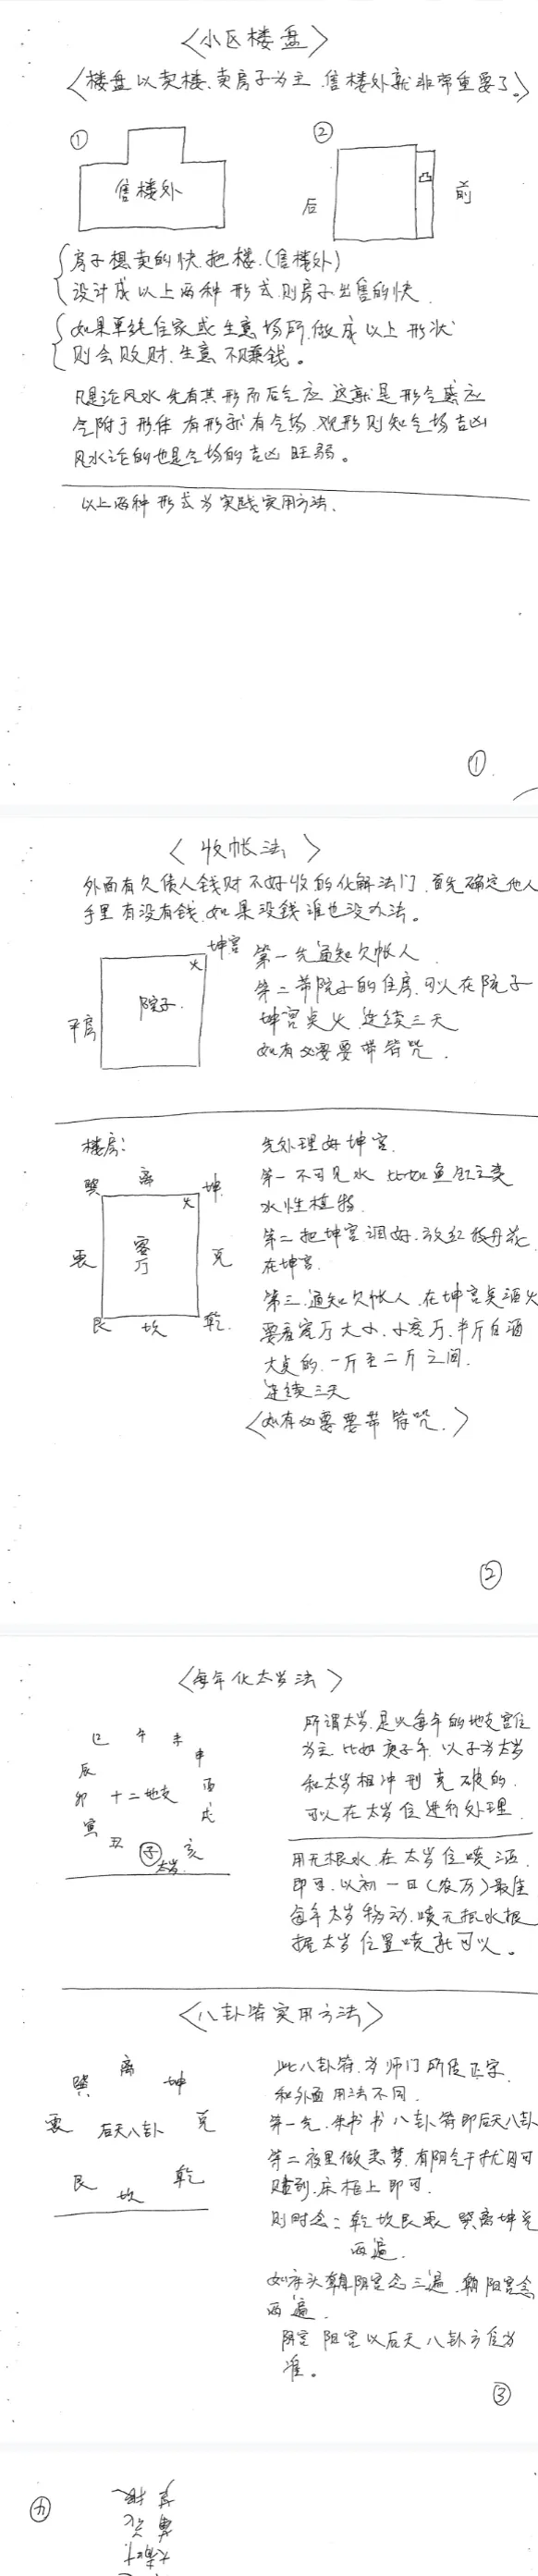 〈小区楼盘〉
〈楼盘以卖楼、卖房子为主 售楼外就非常重要了。〉
① ②
售楼外
后 凸 前
房子想卖的快.把楼.(售楼外)
设计成以上两种形式.则房子出售的快.
如果单纯住家或生意场所.做成以上形状
则会败财.生意不赚钱。
凡是论风水 先有其形而后气应 这就是形气感应
气附于形体 有形就有气场.观形则知气场吉凶
风水论的也是气场的吉凶旺弱。
以上两种形式为实践实用方法.
①
〈收帐法〉
外面有欠债人钱财不好收的化解法门.首先确定他人
手里有没有钱.如果没钱谁也没办法。
坤宫
火
院子.
平房
第一先通知欠帐人.
第二带院子的住房.可以在院子
坤宫点火.连续三天
如有必要要带符咒.
楼房:
巽 离 坤
火
震 客厅 兑
艮 坎 乾.
先处理好坤宫.
第一不可见水 比如鱼缸之类
水性植物.
第二把坤宫调好.放红牡丹花
在坤宫.
第三.通知欠帐人.在坤宫点酒火
要看客厅大小.小客厅.半斤白酒
大点的.一斤至二斤之间.
连续三天
〈如有必要要带符咒.〉
②
〈每年化太岁法〉
巳 午 未
辰 申
卯 十二地支 酉
寅 戌
丑 子 亥
太岁.
所谓太岁.是以每年的地支宫位
为主 比如庚子年.以子为太岁
和太岁相冲刑克破的.
可以在太岁位进行处理.
用无根水.在太岁位喷洒.
即可.以初一日(农历)最佳
每年太岁移动.喷无根水根
据太岁位置喷就可以。
〈八卦符实用方法〉
巽 离 坤
震 后天八卦 兑
艮 坎 乾
此八卦符.为师门所传正宗.
和外面用法不同.
第一先.朱书书八卦符即后天八卦
第二夜里做恶梦.有阴气干扰.
床 上即可.
则时念: 乾坎艮震 巽离坤兑
两遍.
如床头朝阴宫念三遍.朝阳宫念
两遍.
阴宫 阳宫以后天八卦方位为
准。
③
④